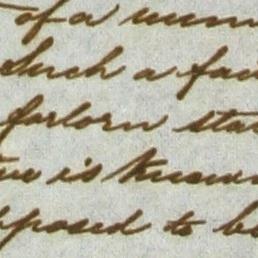 of a
Such a fai
forlorn sta
is known
pposed to be